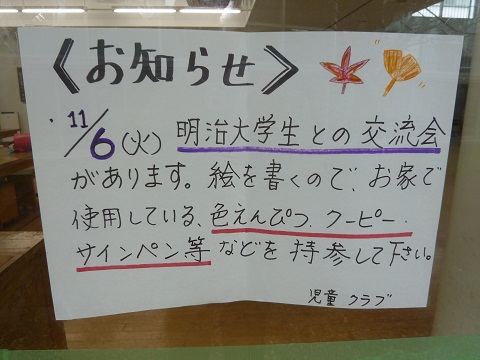 《お知らせ》
11/6(火) 明治大学生との交流会
があります。絵を書くので、お家で
使用している、色えんぴつ、クーピー、
サインペン等などを持参して下さい。
児童クラブ